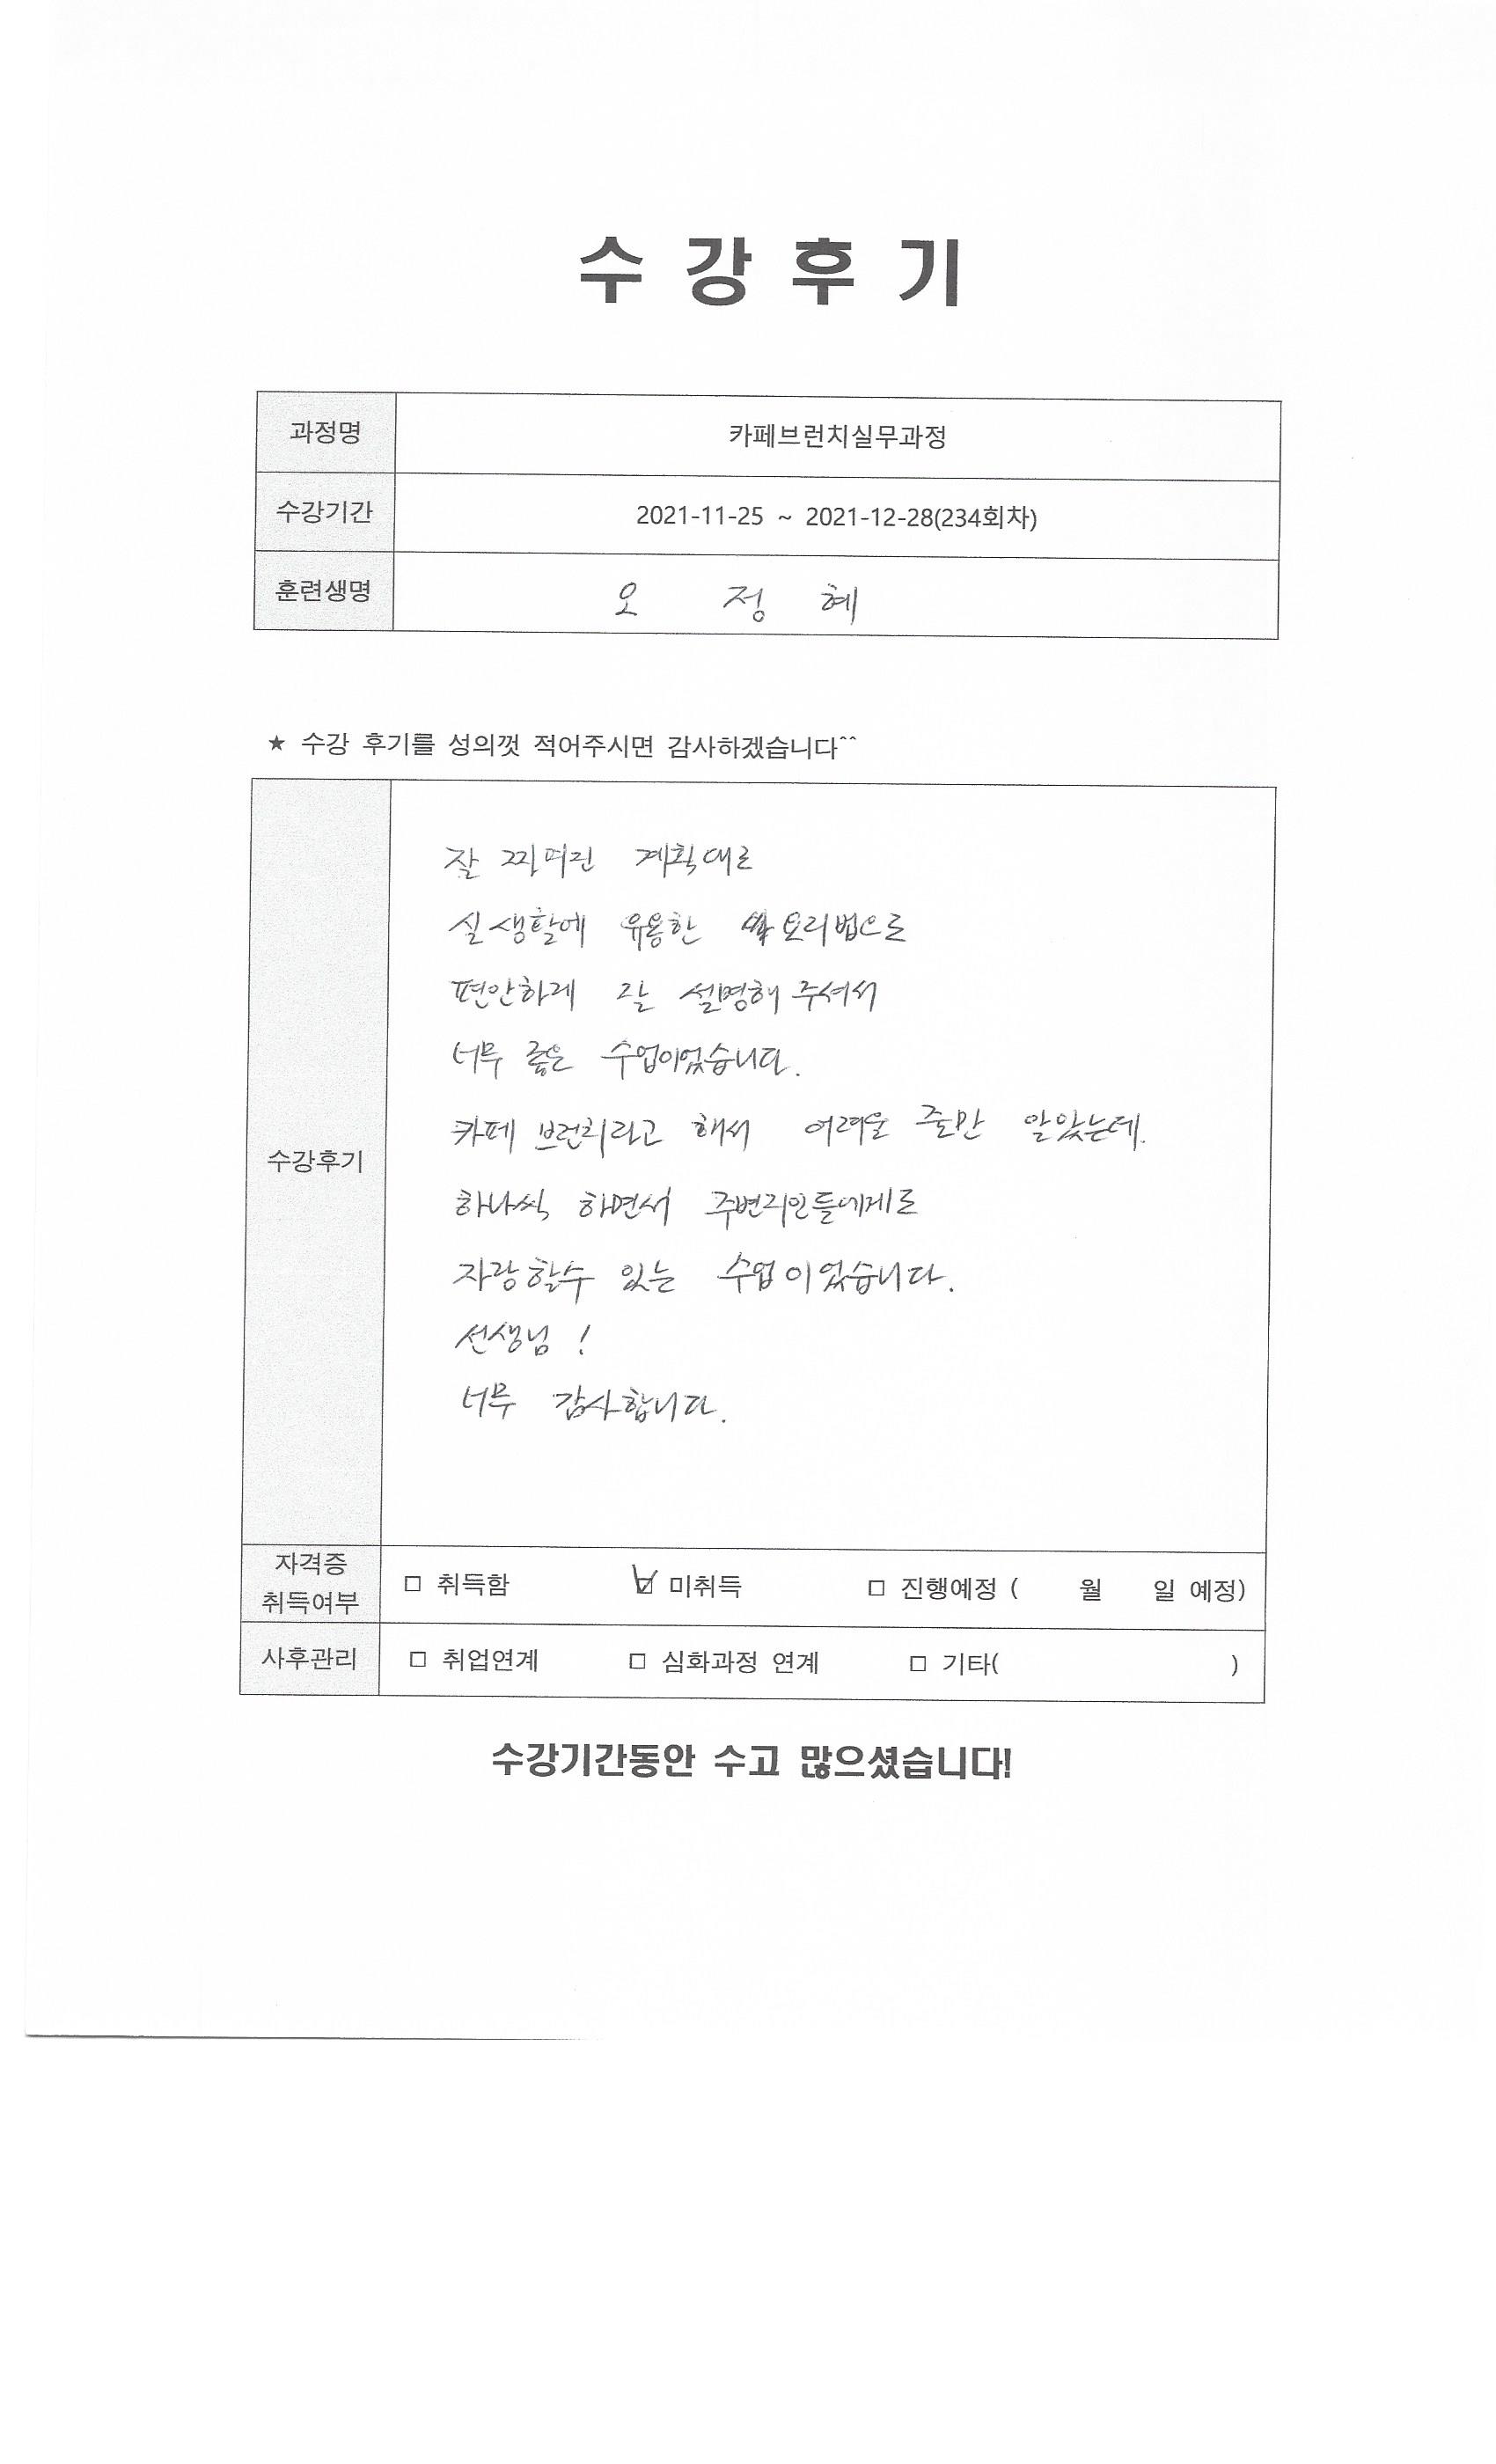 수 강 후 기
과정명 카페브런치실무과정
수강기간 2021-11-25 ~ 2021-12-28(234회차)
훈련생명 오 정 혜
★ 수강 후기를 성의껏 적어주시면 감사하겠습니다^^
수강후기
잘 짜여진 계획대로
실생활에 유용한 요리법으로
편안하게 잘 설명해 주셔서
너무 좋은 수업이었습니다.
카페 브런치라고 해서 어려울 줄만 알았는데.
하나씩 하면서 주변지인들에게로
자랑할수 있는 수업이었습니다.
선생님 !
너무 감사합니다.
자격증 취득여부 □ 취득함 ☑ 미취득 □ 진행예정 ( 월 일 예정)
사후관리 □ 취업연계 □ 심화과정 연계 □ 기타( )
수강기간동안 수고 많으셨습니다!